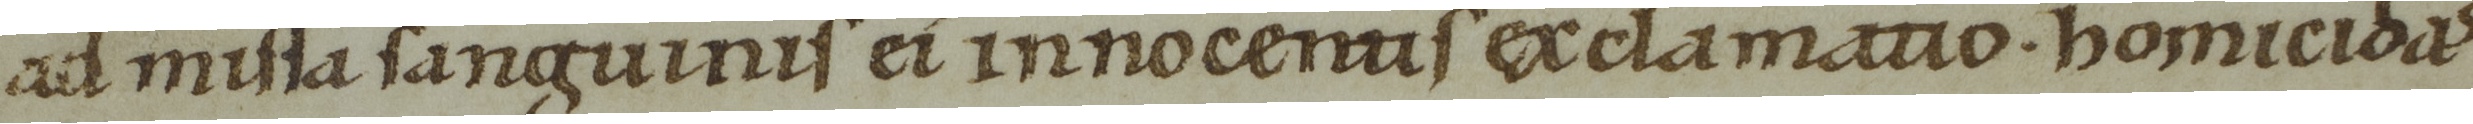 ad missa sanguinis ei innocentis exclamatio. homicidas